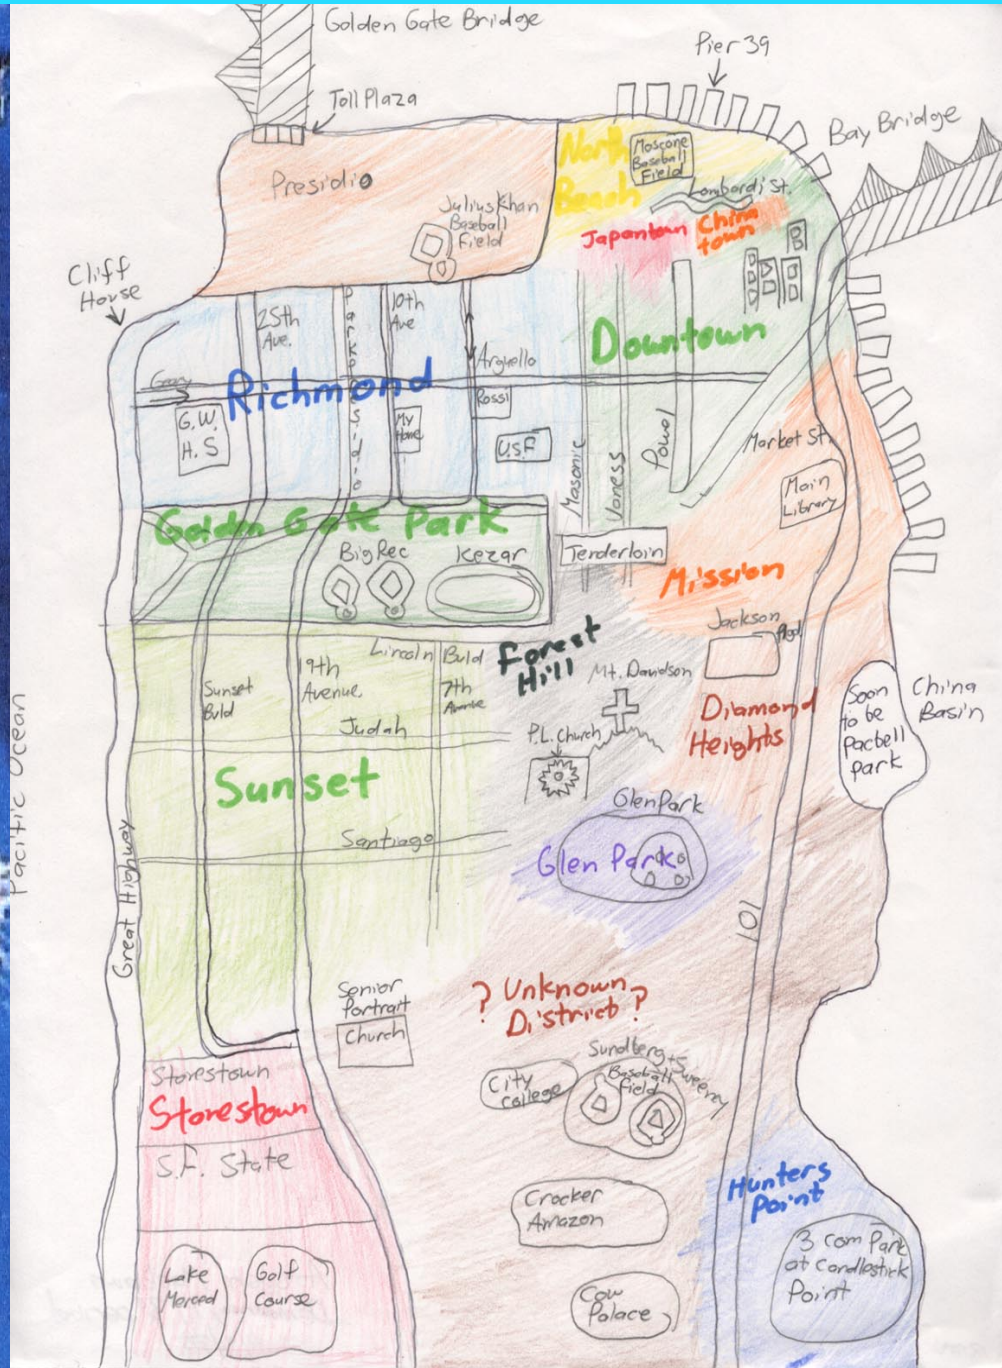 Golden Gate Bridge
Pier 39
Toll Plaza
Bay Bridge
North
Beach
Moscone
Baseball
Field
Presidio
Lombardi St.
Julius Khan
Baseball
Field
Japantown
China
town
Cliff
House
25th
Ave.
Park Presidio
10th
Ave
Arguello
Downtown
Geary
Richmond
Rossi
G.W.
H.S
My
Home
U.S.F
Masonic
Vaness
Powol
Market St.
Main
Library
Golden Gate Park
Big Rec
Kezar
Tenderloin
Mission
Jackson
Plgd.
Lincoln Buld
Forest
Hill
Mt. Davidson
Sunset
Buld
19th
Avenue
7th
Avenue
Judah
P.L. Church
Diamond
Heights
Soon
to be
Pacbell
Park
China
Basin
Pacific Ocean
Sunset
Glen Park
Santiago
Glen Park
Great Highway
101
Senior
Portrait
Church
? Unknown
District ?
Sundberg + Sweeney
Baseball
Field
City
College
Storestown
Storestown
S.F. State
Hunters
Point
Crocker
Amazon
3 com Park
at Candlestick
Point
Lake
Merced
Golf
Course
Cow
Palace